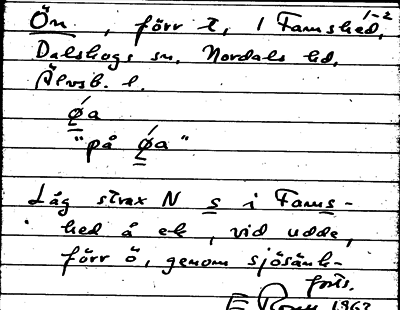 Ön, förr t, 1 Famshed, 1-2
Dalskogs sn, Nordals hd,
Älvsb. l.
ǿa
"på ǿa"
Låg strax N s i Fams-
hed å ek, vid udde,
förr ö, genom sjösänk-
forts.
1963